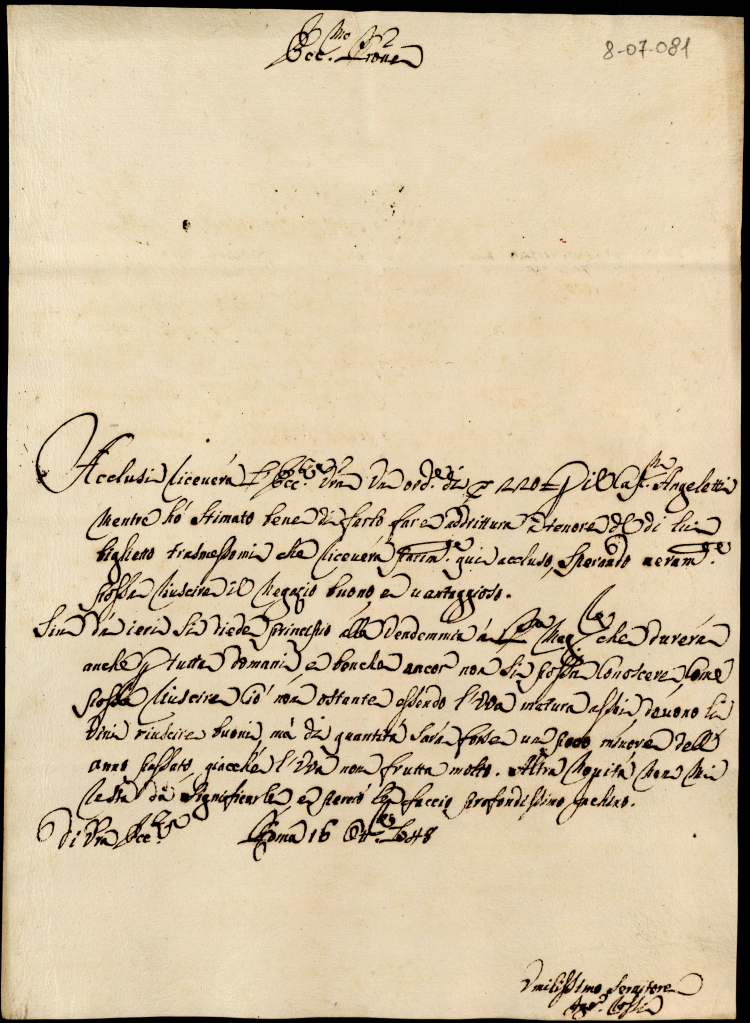 Ecc.mo Prone
8-07-081
Acclusa riceverà l'Ecc.za Vra un ord.e di 220 = p il Cast. Angeletti
mentre hó stimato bene di farlo fare addrittura a tenore del di lui
biglietto trasmessomi che riceverà parim.te qui accluso, sperando veram.te
possa riuscire il negozio buono e vantaggioso.
Sin da ieri si diede principio alla Vendemmia á che durerà
anche p tutta domani, e benche ancor non si possa conoscere come
possa riuscire, ció non ostante essendo l'Uva matura assai, devono li
Vini riuscire buoni, má di quantità sarà forse un poco minore dell'
anno passato, giacché l'Uva non frutta molto. Altra Novità non mi
resta da significarle, e perció le faccio profondissimo inchino.
Di Vra Ecc.za Roma 16
Umilissimo Servitore